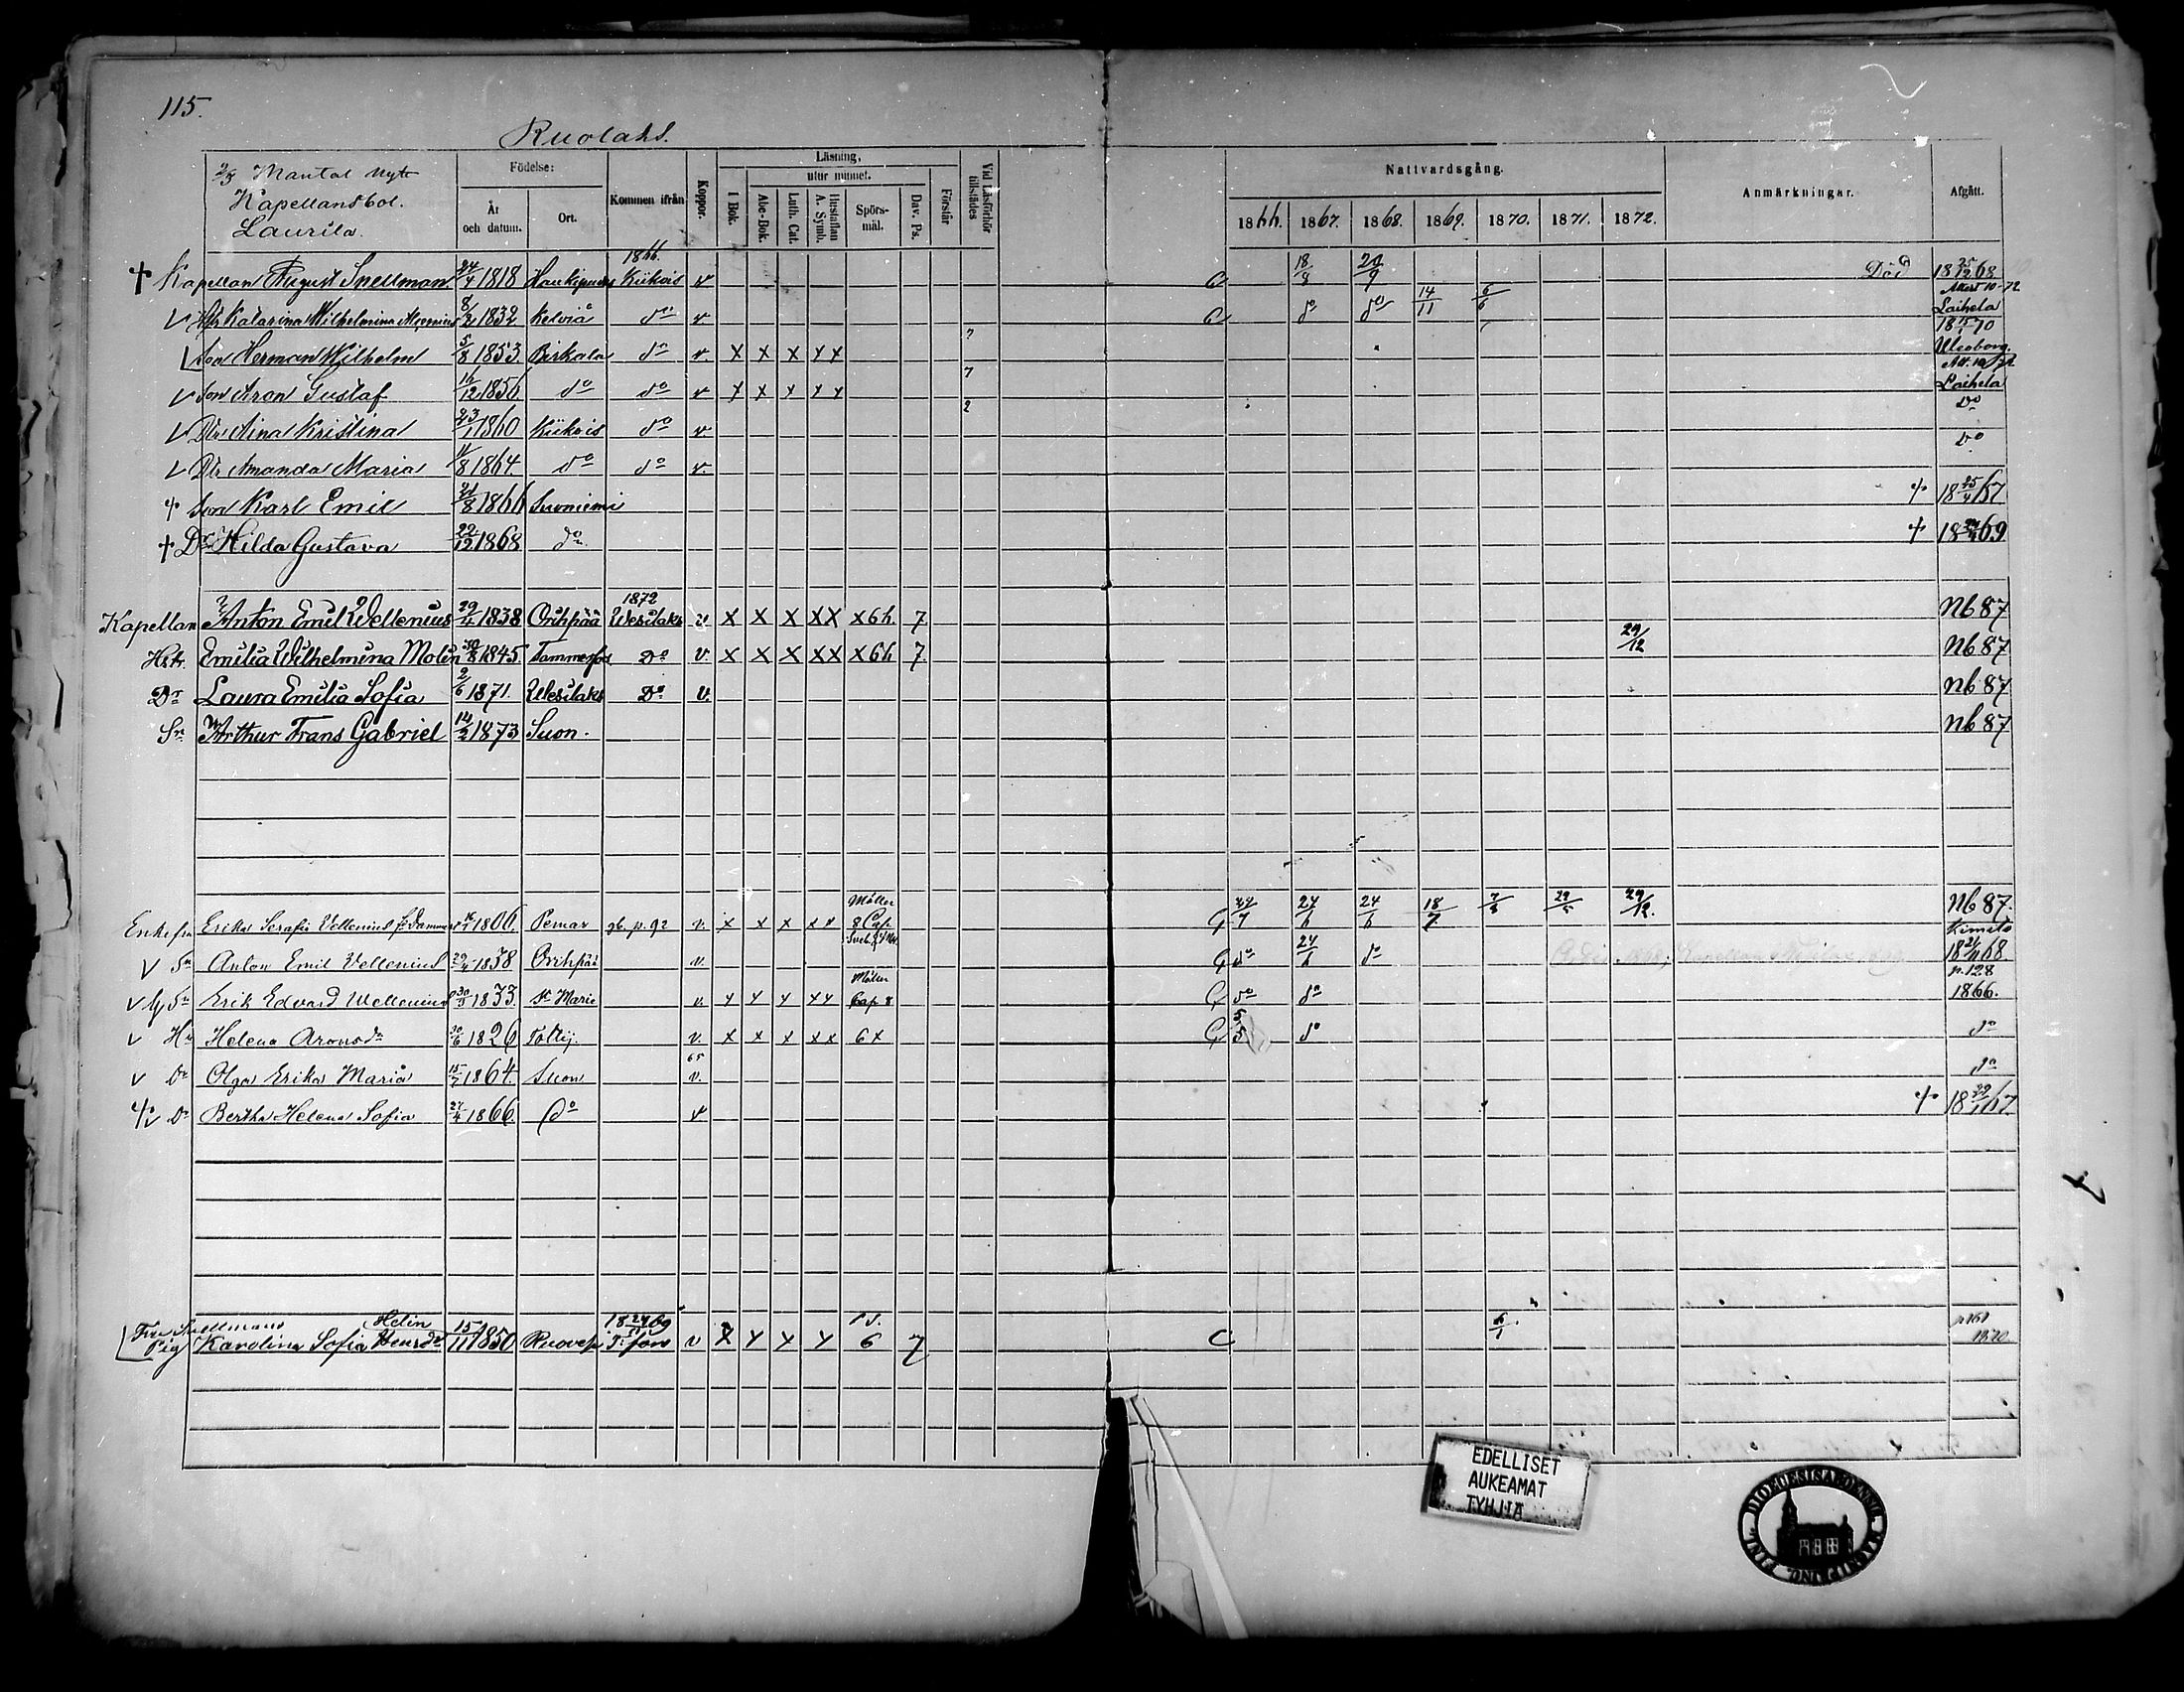 115.
Ruolaks.
2/3 Mantal Nytt
Kapellansbol.
Laurila.
Födelse:
År och datum.
Ort.
Kommen ifrån
Koppor.
Läsning,
utur minnet.
I Bok.
Abc-Bok.
Luth. Cat.
Hustaflan A. Symb.
Spörs-mål.
Dav. Ps.
Förstår
Vid Läsförhör tillstädes
Nattvardsgång.
1866. 1867. 1868. 1869. 1870. 1871. 1872.
Anmärkningar.
Afgått.
1866.
† Kapellan August Snellman 24/4 1818 Haukipudas Kiikois v C 18/8 20/9 Död 18 25/12 68
Attest 10-72
v Hstr Katarina Wilhelmina 8/2 1832 Kelviå do v. C do do 14/11 6/6 Laihela
18 15/1 70
v Son Herman Wilhelm 5/8 1853. Birkala do v. x x x x x 7 Uleåborg.
v Son Aron Gustaf 14/12 1856 do do v x x x x x 7 Laihela
v Dtr Aina Kristina 23/1 1860 Kiikois do v. 2 Do
v Dtr Amanda Maria 4/8 1864. do do v. Do
† Son Karl Emil 21/8 1866 Suoniemi † 18 25/4 67
† Dr Hilda Gustava 22/12 1868 do † 18 69
1872
Kapellan Anton Emil Wellenius 29/4 1838 Orihpää Wesilaks v x x x xx x6h. 7 Nb 87
Hstr. Emilia Wilhelmina Molin 30/8 1845. Tammerfors Do v. x x x xx x6h 7 29/12 Nb 87
Dr Laura Emilia Sofia 2/6 1871. Wesilaks Do v. Nb 87
Sn Arthur Frans Gabriel 14/2 1873 Suon. Nb 87
Möller
Enkefru Erika Serafia Vellenius f. 1806. Pemar gb. p. 92 v. x x x x x 8 Cap. G 24/7 24/6 24/6 18/7 7/8 29/5 29/12. Nb 87.
Kimito
v Sn Anton Emil Vellenius 29/4 1838 Orihpää v. G do 24/6 do 18 21/11 68.
Möller
p. 128
v Sn Erik Edvard Wellenius 30/5 1833. St Marie v. x x x xx Cap 8 G do do 1866.
v Hu Helena Aronsdr 30/6 1826 Tottij. v. x x x xx 6x G 5/5 do do
65
v Dr Olga Erika Maria 15/7 1864. Suon v. do
† v Dr Bertha Helena Sofia 27/4 1866. do v † 18 67
Fru Snellmans Helin 18 24/11 69
Pig Karolina Sofia Henrsdr 15/11 1850 Ruovesi T:fors v x x x x 6 7 C 6/1 p 161
1870.
EDELLISET
AUKEAMAT
TYHJIÄ